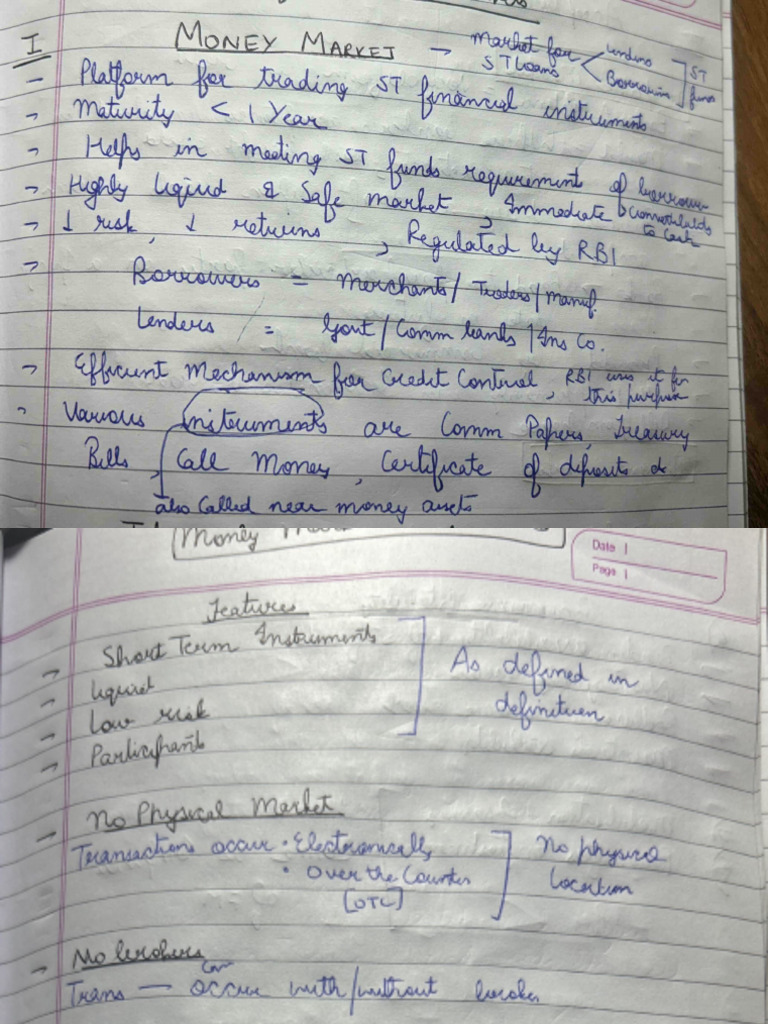 I MONEY MARKET → Market for ST loans < lending Borrowing ] ST funds
– Platform for trading ST financial instruments
→ Maturity < 1 Year
→ Helps in meeting ST funds requirement of borrow
→ Highly liquid & Safe market, Immediate
to Cash
→ ↓ risk, ↓ returns, Regulated by RBI
→ Borrowers = Merchants / Traders / manuf.
Lenders = Govt / Comm banks / Ins Co.
→ Efficient Mechanism for Credit Control, RBI uses it for
this purpose
→ Various instruments are Comm Papers, Treasury
Bills, Call Money, Certificate of deposits
also called near money assets
Money
Date |
Page |
Features
→ Short Term Instruments
→ liquid
→ Low risk
→ Participants
As defined in
definition
→ No Physical Market
Transactions occur • Electronically
• Over the Counter
[OTC]
No physical
location
→ No brokers
Trans — can occur with/without broker